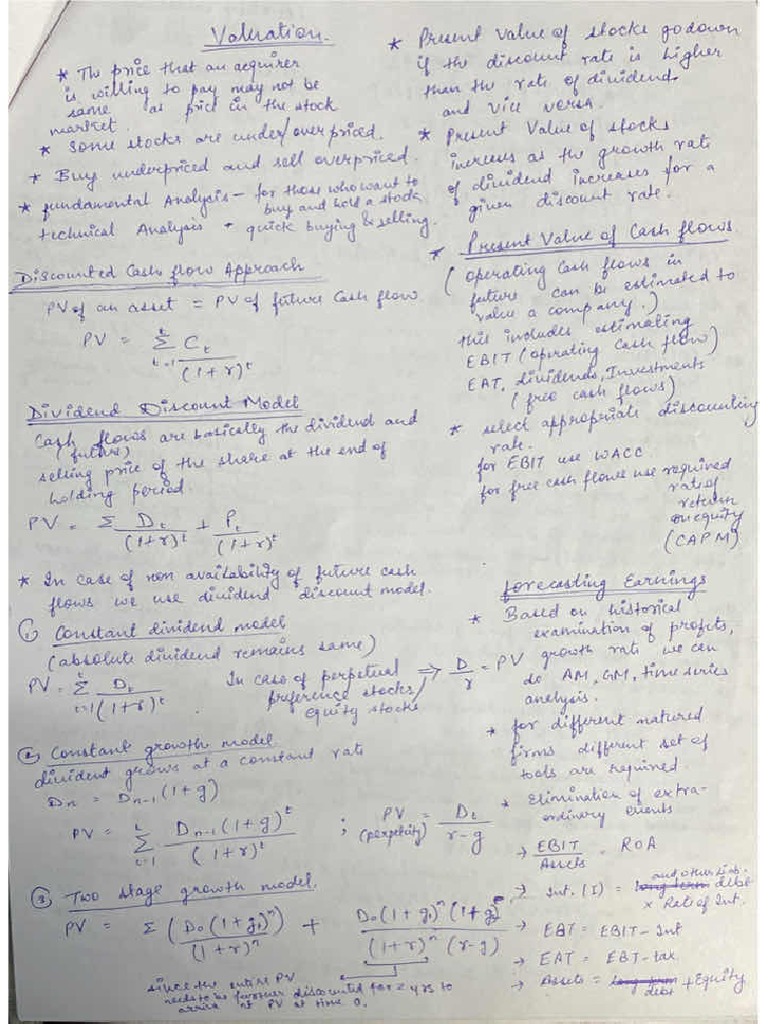 Valuation.
* The price that an acquirer
is willing to pay may not be
same as price in the stock
market.
* Some stocks are under/over priced.
* Buy underpriced and sell overpriced.
* fundamental Analysis - for those who want to
buy and hold a stock
technical Analysis - quick buying & selling.
Discounted Cash flow Approach
PV of an asset = PV of future Cash flow.
PV = t Σ t=1 Ct / (1+r)^t
Dividend Discount Model
Cash flows are basically the dividend and
(future)
selling price of the share at the end of
holding period.
PV = Σ Dt / (1+r)^t + Pt / (1+r)^t
* In case of non availability of future cash
flows we use dividend discount model.
① Constant dividend model
(absolute dividend remains same)
PV = t Σ t=1 Dt / (1+r)^t . In case of perpetual preference stocks/ equity stocks ⇒ D/r = PV
② Constant growth model
divident grows at a constant rate
Dn = Dn-1 (1+g)
PV = t Σ t=1 Dn-1 (1+g)^t / (1+r)^t ; PV (perpetuity) = Dt / r-g
③ Two stage growth model.
PV = Σ (D0 (1+g1)^n) / (1+r)^n + D0 (1+g1)^n (1+g) / (1+r)^n (r-g)
since the entire PV
needs to be further discounted for 2 yrs to
arrive at PV at time 0.
* Present Value of stocks go down
if the discount rate is higher
than the rate of dividends
and vice versa.
* Present Value of stocks
increses as the growth rate
of dividend increases for a
given discount rate.
* Present Value of Cash flows.
(operating Cash flows in
future can be estimated to
value a company.)
this includes estimating
EBIT (operating cash flow)
EAT, dividends, Investments
(free cash flows)
* select appropriate discounting
rate.
for EBIT use WACC
for free cash flows use required
rate of
return
on equity
(CAPM)
forecasting Earnings
* Based on historical
examination of profits,
growth rate we can
do AM, GM, time series
analysis.
* for different matured
firms different set of
tools are required.
* Elimination of extra-
ordinary events
→ EBIT / Assets = ROA
→ Int. (I) = long term debt
× Rate of Int.
→ EBT = EBIT - Int
→ EAT = EBT - tax
→ Assets = long term debt + Equity